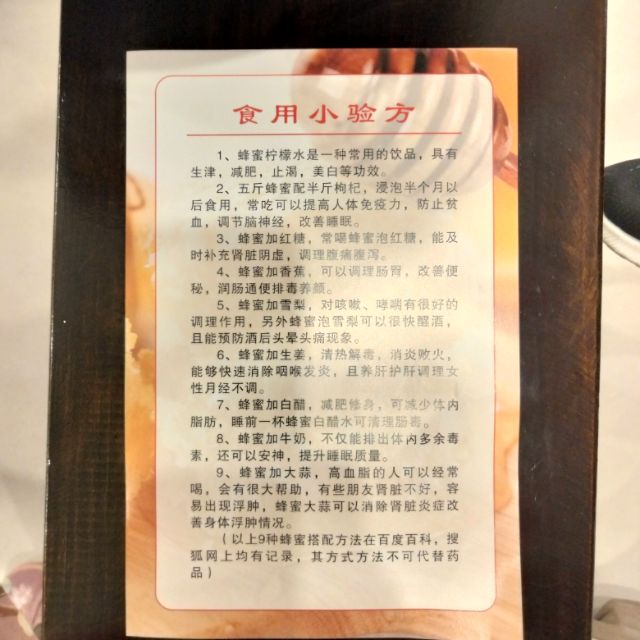 食用小验方
1、蜂蜜柠檬水是一种常用的饮品，具有
生津，减肥，止渴，美白等功效。
2、五斤蜂蜜配半斤枸杞，浸泡半个月以
后食用，常吃可以提高人体免疫力，防止贫
血，调节脑神经，改善睡眠。
3、蜂蜜加红糖，常喝蜂蜜泡红糖，能及
时补充肾脏阴虚，调理腹痛腹泻。
4、蜂蜜加香蕉，可以调理肠胃，改善便
秘，润肠通便排毒养颜。
5、蜂蜜加雪梨，对咳嗽、哮喘有很好的
调理作用，另外蜂蜜泡雪梨可以很快醒酒，
且能预防酒后头晕头痛现象。
6、蜂蜜加生姜，清热解毒，消炎败火，
能够快速消除咽喉发炎，且养肝护肝调理女
性月经不调。
7、蜂蜜加白醋，减肥修身，可减少体内
脂肪，睡前一杯蜂蜜白醋水可清理肠毒。
8、蜂蜜加牛奶，不仅能排出体内多余毒
素，还可以安神，提升睡眠质量。
9、蜂蜜加大蒜，高血脂的人可以经常
喝，会有很大帮助，有些朋友肾脏不好，容
易出现浮肿，蜂蜜大蒜可以消除肾脏炎症改
善身体浮肿情况。
（以上9种蜂蜜搭配方法在百度百科，搜
狐网上均有记录，其方式方法不可代替药
品）